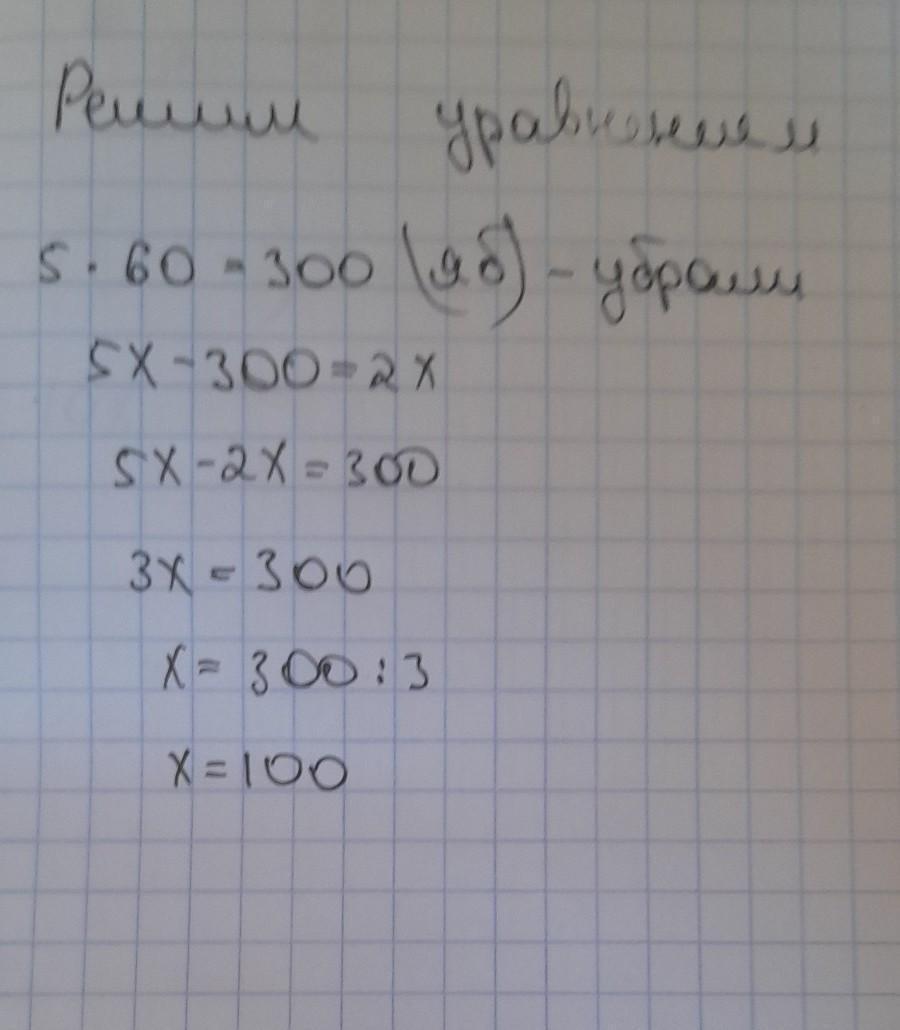 Решим уравнением
5 · 60 = 300 (яб) - убрали
5x - 300 = 2x
5x - 2x = 300
3x = 300
x = 300 : 3
x = 100